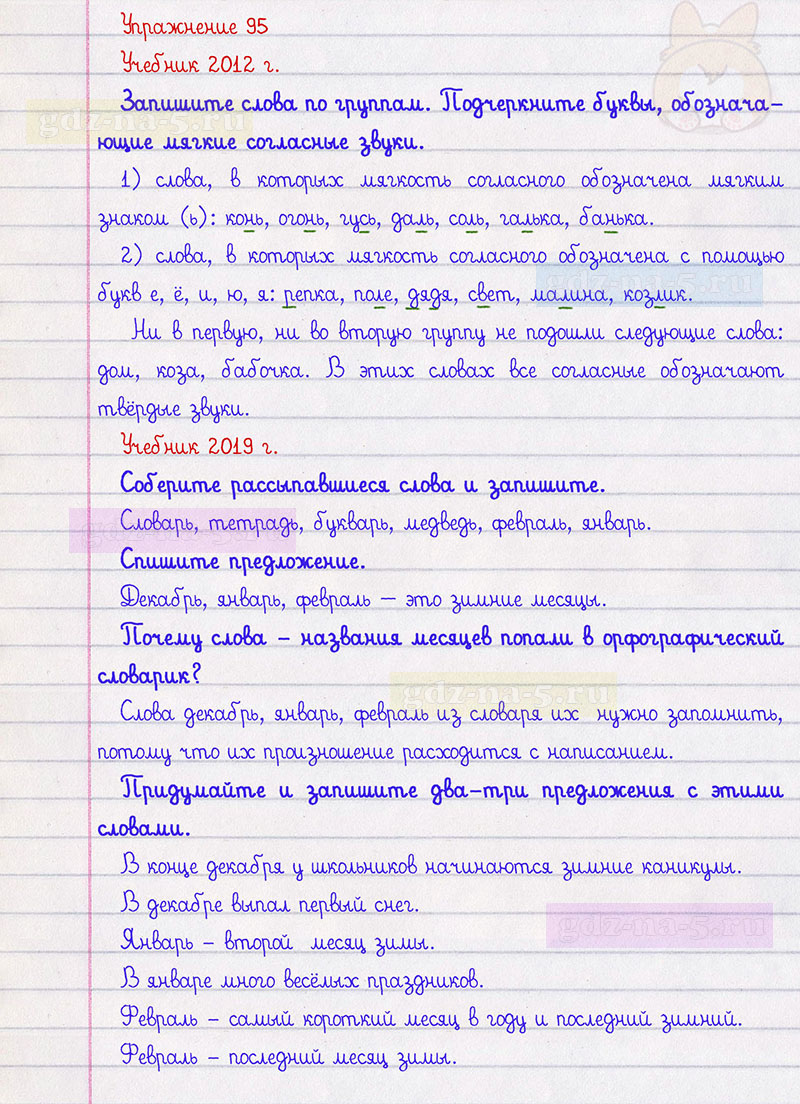 Упражнение 95
Учебник 2012 г.
Запишите слова по группам. Подчеркните буквы, обознача-
ющие мягкие согласные звуки.
gdz-na-5.ru
1) слова, в которых мягкость согласного обозначена мягким
знаком (ь): конь, огонь, гусь, даль, соль, галька, банька.
2) слова, в которых мягкость согласного обозначена с помощью
букв е, ё, и, ю, я: репка, поле, дядя, свет, малина, козлик.
gdz-na-5.ru
Ни в первую, ни во вторую группу не подошли следующие слова:
дом, коза, бабочка. В этих словах все согласные обозначают
твёрдые звуки.
Учебник 2019 г.
Соберите рассыпавшиеся слова и запишите.
Словарь, тетрадь, букварь, медведь, февраль, январь.
gdz-na-5.ru
Спишите предложение.
Декабрь, январь, февраль – это зимние месяцы.
Почему слова – названия месяцев попали в орфографический
словарик?
gdz-na-5.ru
Слова декабрь, январь, февраль из словаря их нужно запомнить,
потому что их произношение расходится с написанием.
Придумайте и запишите два-три предложения с этими
словами.
В конце декабря у школьников начинаются зимние каникулы.
В декабре выпал первый снег.
gdz-na-5.ru
Январь – второй месяц зимы.
В январе много весёлых праздников.
Февраль – самый короткий месяц в году и последний зимний.
Февраль – последний месяц зимы.